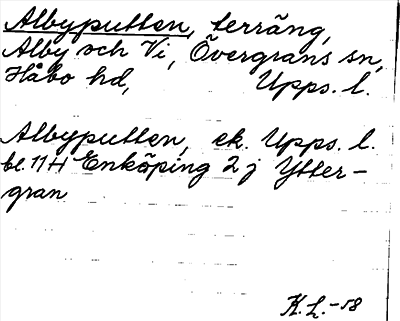 Albyputten, terräng,
Alby och Vi, Övergrans sn,
Håbo hd, Upps. l.
Albyputten, ek. Upps. l.
bl. 11 H Enköping 2 j Ytter-
gran
K.L.-58